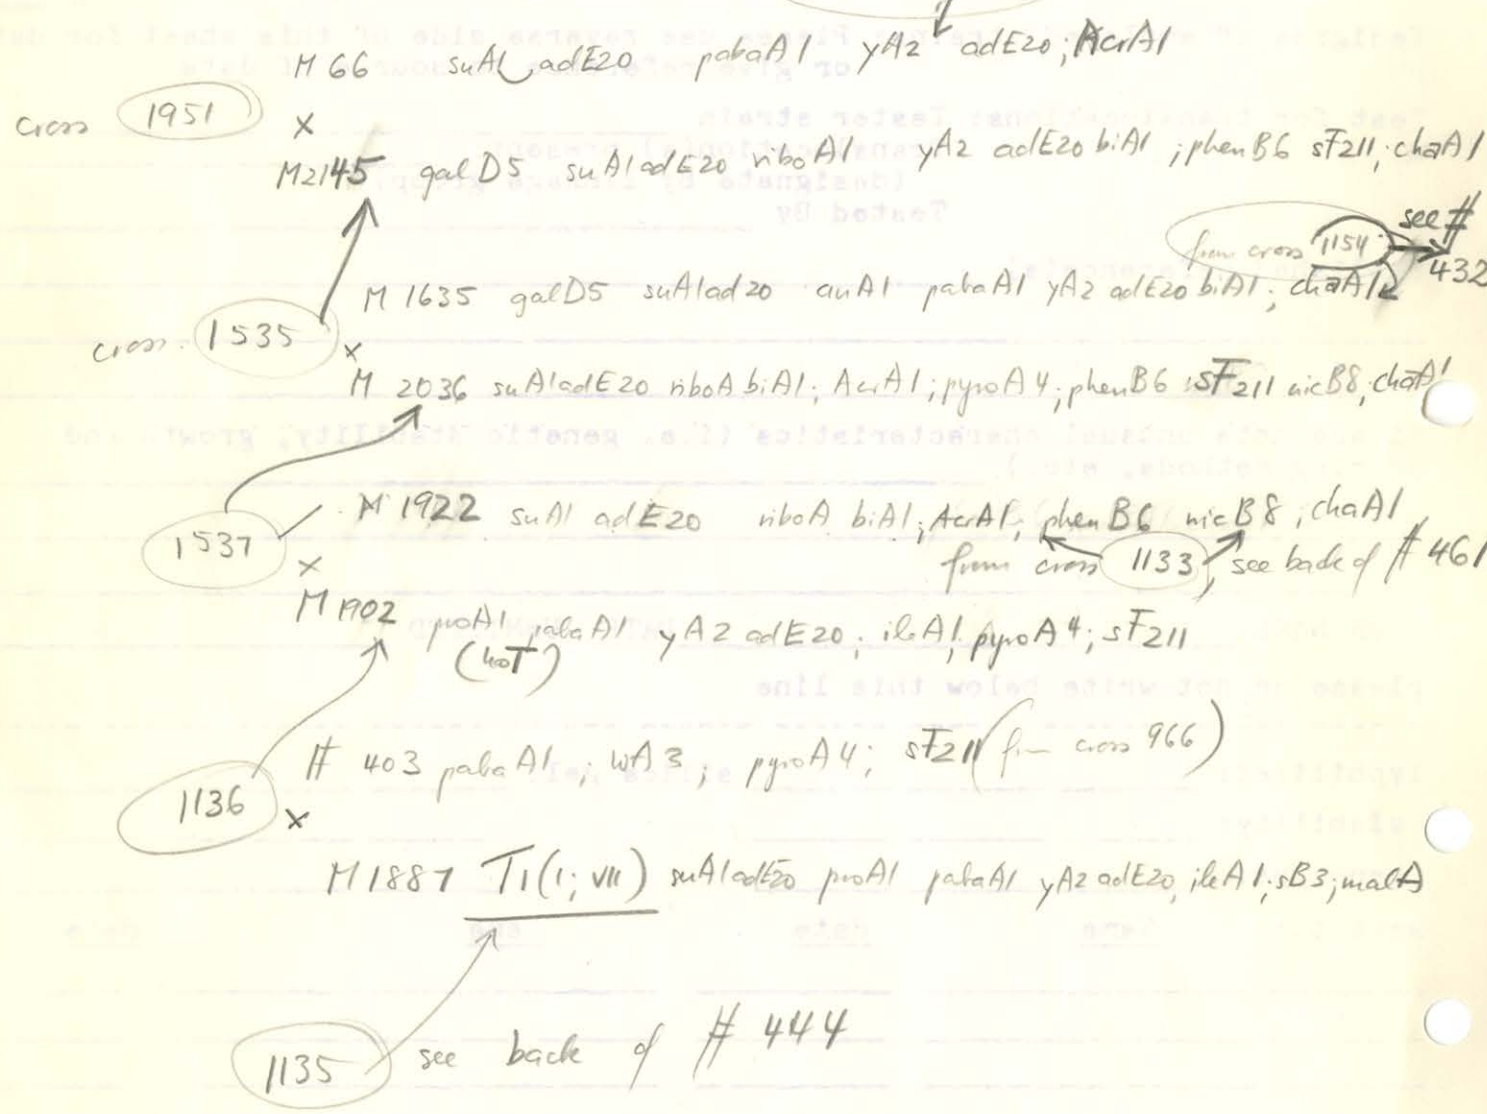 M 66 suA1 adE20 pabaA1 yA2 adE20; AcrA1
cross 1951 x
M2145 galD5 suA1adE20 riboA1 yA2 adE20 biA1 ; phenB6 sF211; chaA1
from cross 1154 see # 432
M 1635 galD5 suA1ad20 anA1 pabaA1 yA2 adE20 biA1; chaA1
cross. 1535 x
M 2036 suA1adE20 riboA biA1; AcrA1; pyroA4; phenB6 ; sF211 nicB8; chaA1
M 1922 suA1 adE20 riboA biA1; AcrA1; phenB6 nicB8 ; chaA1
1537 x
from cross 1133, see back of # 461
M 1902 proA1 pabaA1 yA2 adE20; ileA1, pyroA4; sF211
(noT)
# 403 pabaA1 ; wA3 ; pyroA4; sF211 (from cross 966)
1136 x
M1887 T1(I; VII) suA1adE20 proA1 pabaA1 yA2 adE20, ileA1; sB3; malA
1135 see back of # 444
Tested By
please do not write below this line